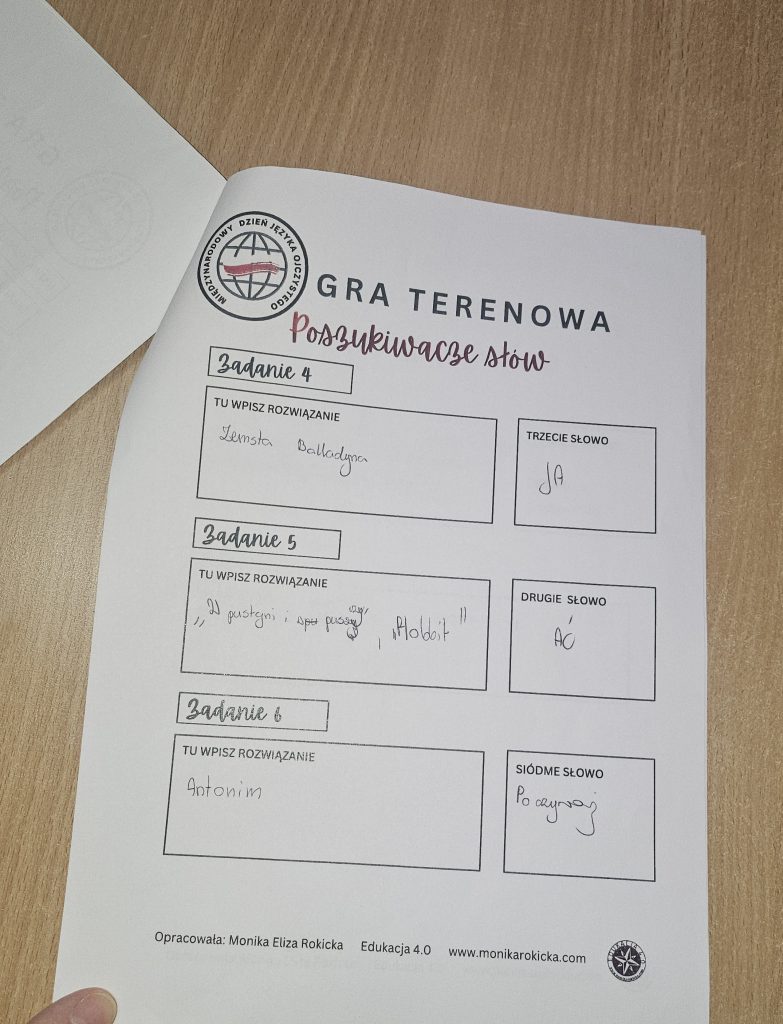 MIĘDZYNARODOWY DZIEŃ JĘZYKA OJCZYSTEGO
GRA TERENOWA
Poszukiwacze słów
Zadanie 4
TU WPISZ ROZWIĄZANIE
Zemsta Balladyna
TRZECIE SŁOWO
JA
Zadanie 5
TU WPISZ ROZWIĄZANIE
„W pustyni i puszczy”, „Hobbit”
DRUGIE SŁOWO
AĆ
Zadanie 6
TU WPISZ ROZWIĄZANIE
Antonim
SIÓDME SŁOWO
Poczywaj
Opracowała: Monika Eliza Rokicka Edukacja 4.0 www.monikarokicka.com
EDUKACJA 4.0